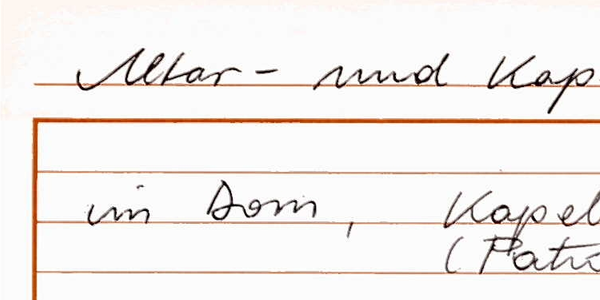 Altar- und Kap
im Dom, Kapel
(Patro